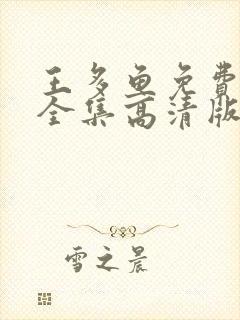 王多鱼免費
全集高清版
雪之晨